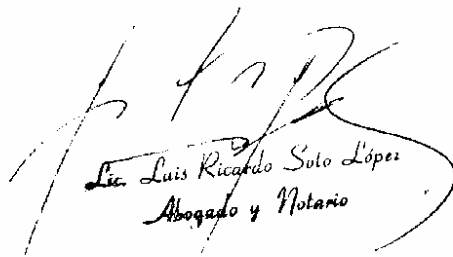 Lic. Luis Ricardo Soto López
Abogado y Notario